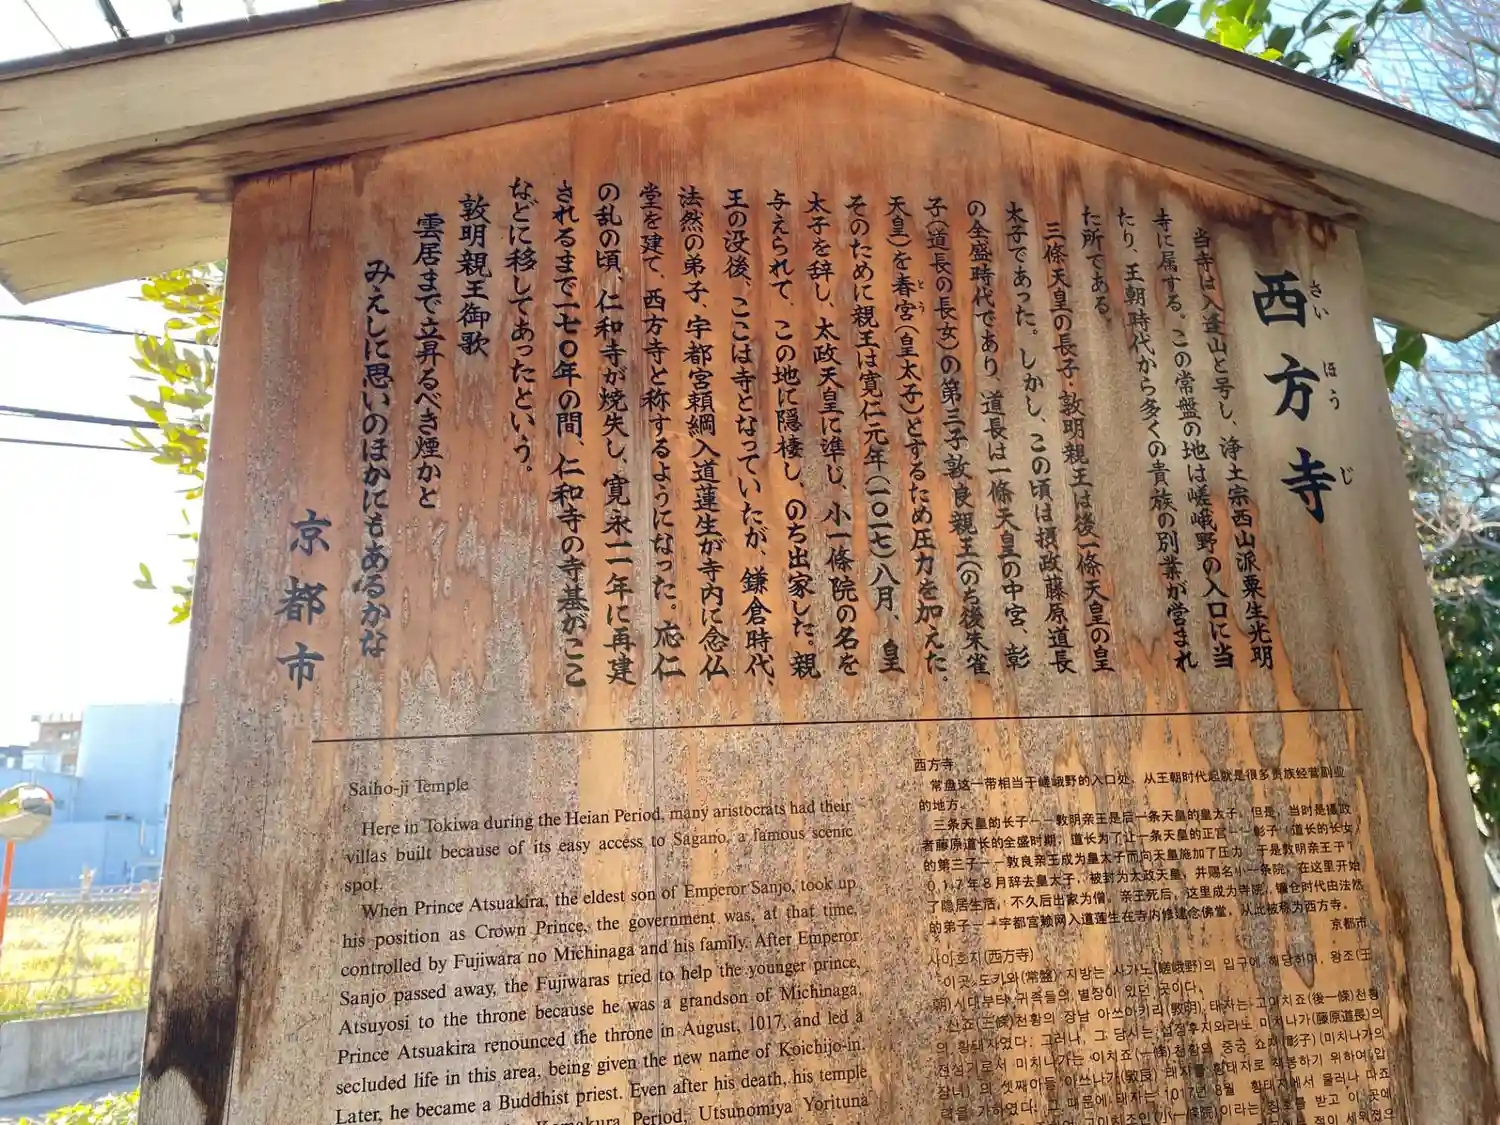 西方寺
さいほうじ
当寺は入逢山と号し、浄土宗西山派粟生光明
寺に属する。この常盤の地は嵯峨野の入口に当
たり、王朝時代から多くの貴族の別業が営まれ
た所である。
三條天皇の長子・敦明親王は後一條天皇の皇
太子であった。しかし、この頃は摂政藤原道長
の全盛時代であり、道長は一條天皇の中宮、彰
子(道長の長女)の第三子敦良親王(のち後朱雀
天皇)を春宮(皇太子)とするため圧力を加えた。
とう
そのために親王は寛仁元年(一〇一七)八月、皇
太子を辞し、太政天皇に準じ、小一條院の名を
与えられて、この地に隠棲し、のち出家した。親
王の没後、ここは寺となっていたが、鎌倉時代、
法然の弟子、宇都宮頼綱入道蓮生が寺内に念仏
堂を建て、西方寺と称するようになった。応仁
の乱の頃、仁和寺が焼失し、寛永一一年に再建
されるまで一七〇年の間、仁和寺の寺基がここ
などに移してあったという。
敦明親王御歌
雲居まで立昇るべき煙かと
みえしに思いのほかにもあるかな
京都市
Saiho-ji Temple
Here in Tokiwa during the Heian Period, many aristocrats had their
villas built because of its easy access to Sagano, a famous scenic
spot.
When Prince Atsuakira, the eldest son of Emperor Sanjo, took up
his position as Crown Prince, the government was, at that time,
controlled by Fujiwara no Michinaga and his family. After Emperor
Sanjo passed away, the Fujiwaras tried to help the younger prince,
Atsuyosi to the throne because he was a grandson of Michinaga.
Prince Atsuakira renounced the throne in August, 1017, and led a
secluded life in this area, being given the new name of Koichijo-in.
Later, he became a Buddhist priest. Even after his death, his temple
Kamakura Period, Utsunomiya Yorituna
西方寺
常盘这一带相当于嵯峨野的入口处，从王朝时代起就是很多贵族经营副业
的地方。
三条天皇的长子——敦明亲王是后一条天皇的皇太子。但是，当时是摄政
者藤原道长的全盛时期，道长为了让一条天皇的正宫——彰子（道长的长女）
的第三子——敦良亲王成为皇太子而向天皇施加了压力。于是敦明亲王于1
017年8月辞去皇太子，被封为太政天皇，并赐名小一条院，在这里开始
了隐居生活，不久后出家为僧。亲王死后，这里成为寺院，镰仓时代由法然
的弟子——宇都宫赖网入道莲生在寺内修建念佛堂，从此被称为西方寺。
京都市
사이호지(西方寺)
이곳 도키와(常盤) 지방는 사가노(嵯峨野)의 입구에 해당하며, 왕조(王
朝)시대부터 귀족들의 별장이 있던 곳이다.
산죠(三條)천황의 장남 아쓰아키라(敦明) 태자는 고이치죠(後一條)천황
의 황태자였다. 그러나, 그 당시는 섭정후지와라도 미치나가(藤原道長)의
전성기로서 미치나가는 이치죠(一條)천황의 중궁 쇼자(彰子)(미치나가의
장녀) 의 셋째아들 아쓰나가(敦良) 태자를 황태자로 책봉하기 위하여 압
력을 가하였다. 그 때문에 태자는 1017년 8월 황태자에서 물러나 다죠